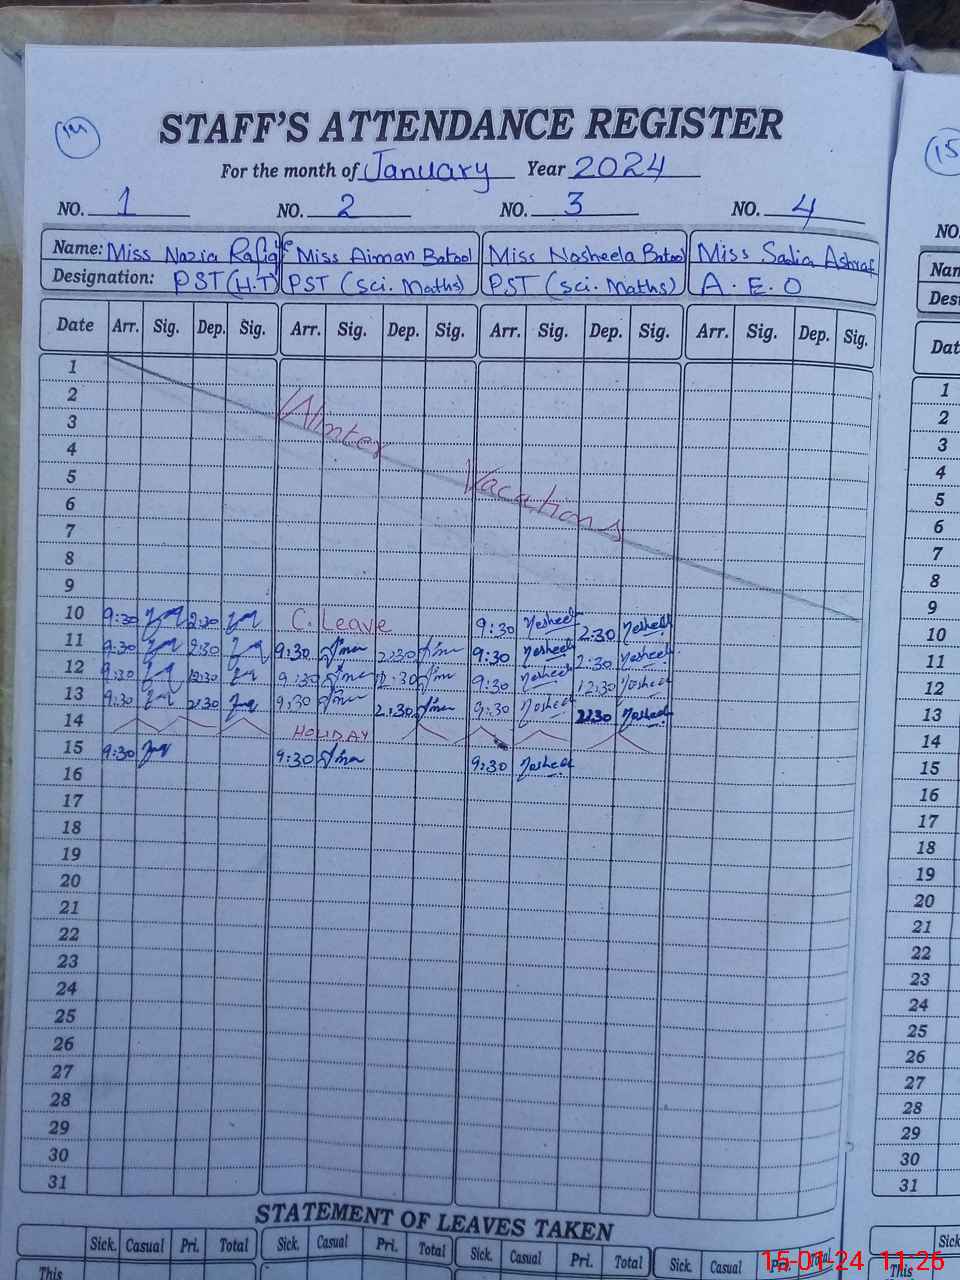 14
STAFF'S ATTENDANCE REGISTER
15
For the month of January Year 2024
NO. 1 NO. 2 NO. 3 NO. 4
NO.
Name: Miss Nazia Rafiq Miss Aiman Batool Miss Nosheela Batool Miss Sadia Ashraf
Designation: PST (H.T) PST (Sci. Maths) PST (Sci. Maths) A.E.O
Date Arr. Sig. Dep. Sig. Arr. Sig. Dep. Sig. Arr. Sig. Dep. Sig. Arr. Sig. Dep. Sig.
1
2
3 Winter
4
5 Vacations
6
7
8
9
10 9:30 2:30 C. Leave 9:30 Nosheela 2:30 Nosheela
11 9:30 2:30 9:30 2:30 9:30 Nosheela 2:30 Nosheela
12 9:30 12:30 9:30 12:30 9:30 Nosheela 12:30 Nosheela
13 9:30 2:30 9:30 2:30 9:30 Nosheela 2:30 Nosheela
14 HOLIDAY
15 9:30 9:30 9:30 Nosheela
16
17
18
19
20
21
22
23
24
25
26
27
28
29
30
31
1
2
3
4
5
6
7
8
9
10
11
12
13
14
15
16
17
18
19
20
21
22
23
24
25
26
27
28
29
30
31
STATEMENT OF LEAVES TAKEN
Sick. Casual Pri. Total Sick. Casual Pri. Total Sick. Casual Pri. Total Sick. Casual Pri. Total
This
This
15-01-24 11:26